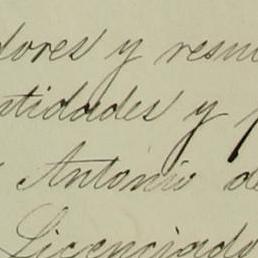 dores y resu
ntidades y p
Antonio de
Licenciado